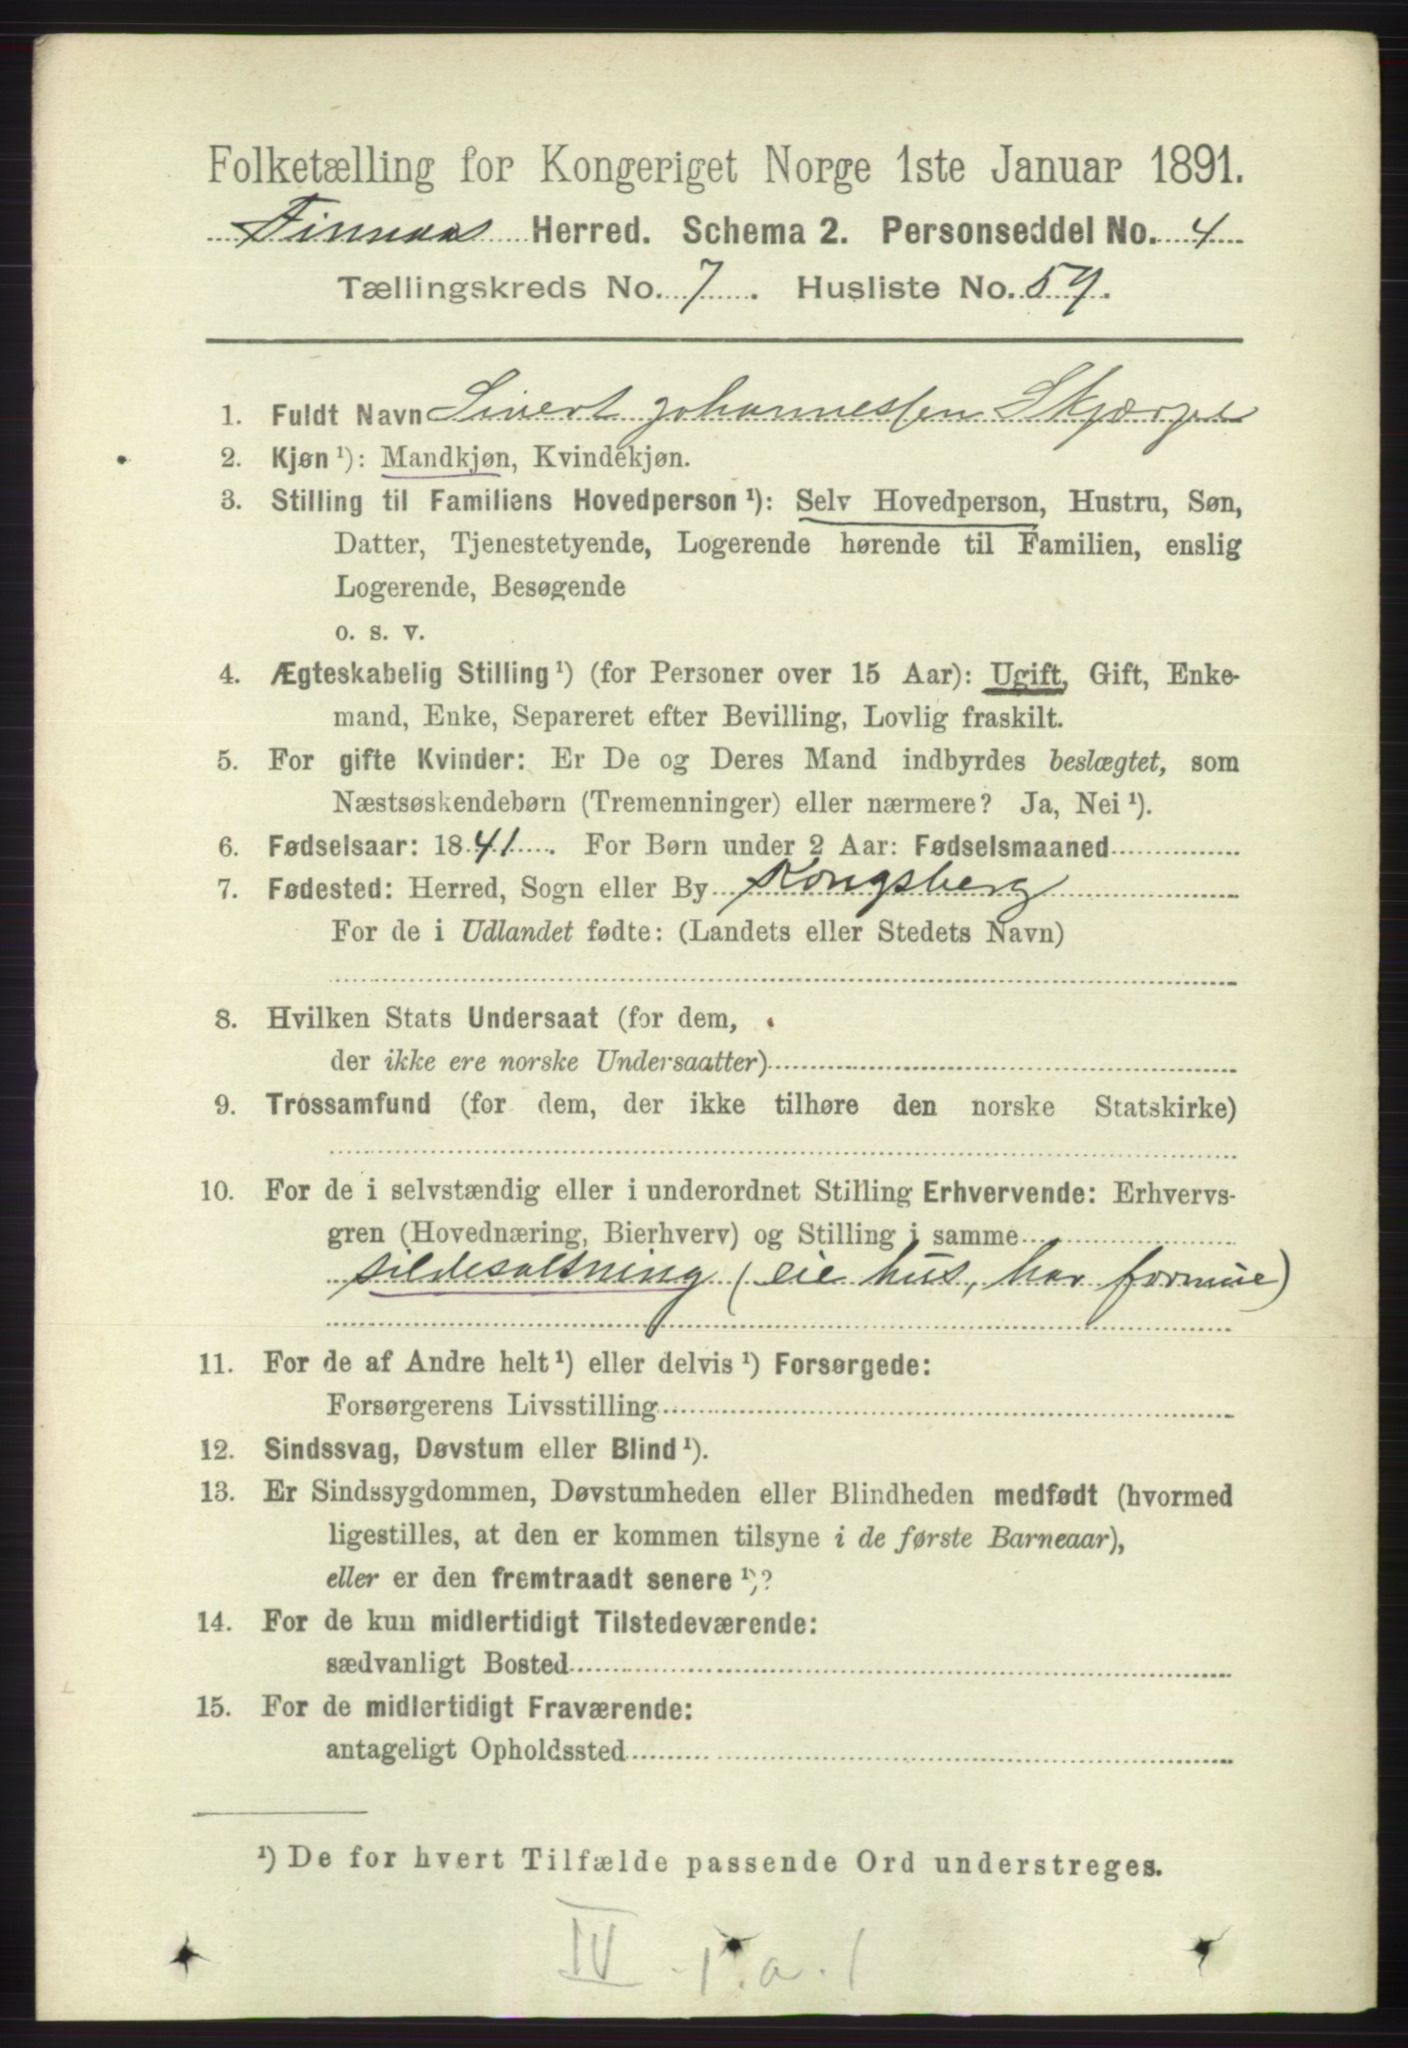 Folketælling for Kongeriget Norge 1ste Januar 1891.
Finnaas Herred. Schema 2. Personseddel No. 4
Tællingskreds No. 7. Husliste No. 59.
1. Fuldt Navn Sivert Johannessen Skjærpe
2. Kjøn ¹): Mandkjøn, Kvindekjøn.
3. Stilling til Familiens Hovedperson ¹): Selv Hovedperson, Hustru, Søn,
Datter, Tjenestetyende, Logerende hørende til Familien, enslig
Logerende, Besøgende
o. s. v.
4. Ægteskabelig Stilling ¹) (for Personer over 15 Aar): Ugift, Gift, Enke-
mand, Enke, Separeret efter Bevilling, Lovlig fraskilt.
5. For gifte Kvinder: Er De og Deres Mand indbyrdes beslægtet, som
Næstsøskendebørn (Tremenninger) eller nærmere? Ja, Nei ¹).
6. Fødselsaar: 1841. For Børn under 2 Aar: Fødselsmaaned
7. Fødested: Herred, Sogn eller By Kongsberg
For de i Udlandet fødte: (Landets eller Stedets Navn)
8. Hvilken Stats Undersaat (for dem,
der ikke ere norske Undersaatter)
9. Trossamfund (for dem, der ikke tilhøre den norske Statskirke)
10. For de i selvstændig eller i underordnet Stilling Erhvervende: Erhvervs-
gren (Hovednæring, Bierhverv) og Stilling i samme
sildesaltning (eie hus, har formue)
11. For de af Andre helt ¹) eller delvis ¹) Forsørgede:
Forsørgerens Livsstilling
12. Sindssvag, Døvstum eller Blind ¹).
13. Er Sindssygdommen, Døvstumheden eller Blindheden medfødt (hvormed
ligestilles, at den er kommen tilsyne i de første Barneaar),
eller er den fremtraadt senere ¹)?
14. For de kun midlertidigt Tilstedeværende:
sædvanligt Bosted
15. For de midlertidigt Fraværende:
antageligt Opholdssted
¹) De for hvert Tilfælde passende Ord understreges.
IV. 1. a. 1